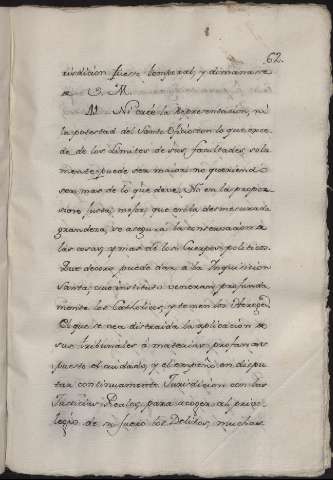 62.
risdicion fuese temporal, y dimanase
de V. M.
Ni crece la Representacion, ni
la potestad del Santo Oficio con lo que exce
de de los limites de sus facultades, sola
mente puede ser maior no queriend
ser mas de lo que deve. Ni en la propor
sion justa, mejor, que en la desmesurada
grandeza, se asegura la conservacion de
las cosas, y mas de los Cuerpos politicos.
Que decoro puede dar à la Inquisicion
Santa, cuio instituto veneran profunda
mente los Catholicos, y temen los Herege
El que se vea distraida la aplicacion de
sus tribunales à materias profanas
puesto el cuidado, y el empeño en dispu
tar continuamente Jurisdicion con las
Justicias Reales, para acoger al privi
legio de su fuero los Delitos, muchas